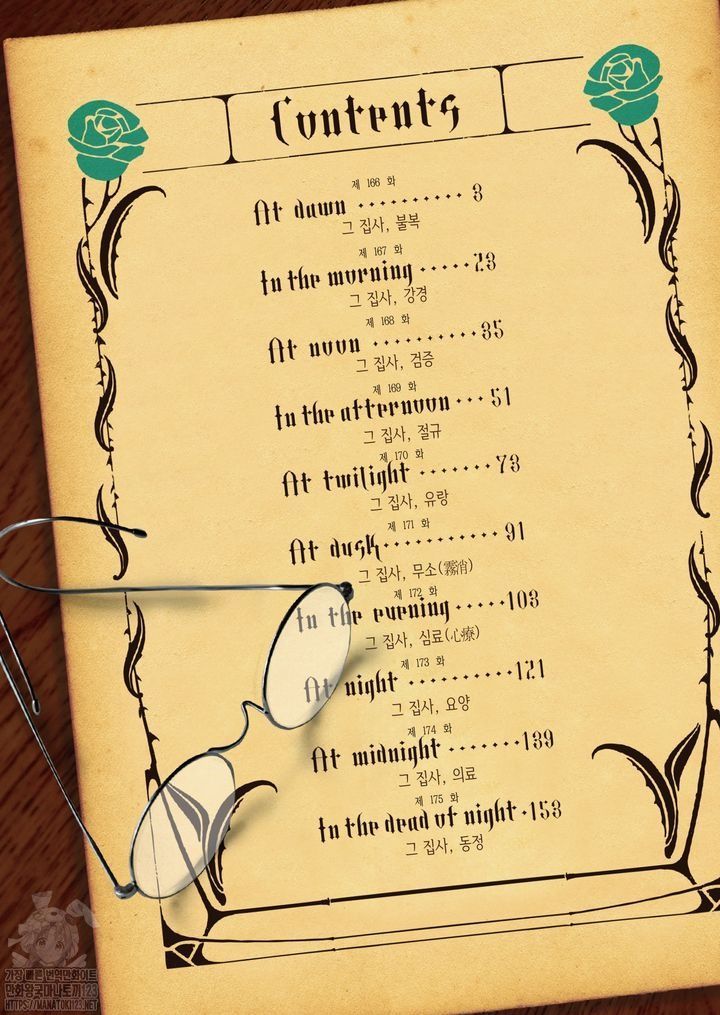 Contents
제 166 화
At dawn ·········· 3
그 집사, 불복
제 167 화
In the morning ····· 23
그 집사, 강경
제 168 화
At noon ·········· 35
그 집사, 검증
제 169 화
In the afternoon ··· 51
그 집사, 절규
제 170 화
At twilight ······· 73
그 집사, 유랑
제 171 화
At dusk ··········· 91
그 집사, 무소(霧消)
제 172 화
In the evening ····· 103
그 집사, 심료(心療)
제 173 화
At night ·········· 121
그 집사, 요양
제 174 화
At midnight ······· 139
그 집사, 의료
제 175 화
In the dead of night · 153
그 집사, 동정
가장 빠른 번역만화이트
만화왕국마나토끼123
HTTPS://MANATOKI123.NET